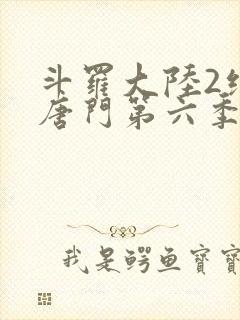 斗羅大陸2絕
唐門第六季
我是鳄鱼寶寶